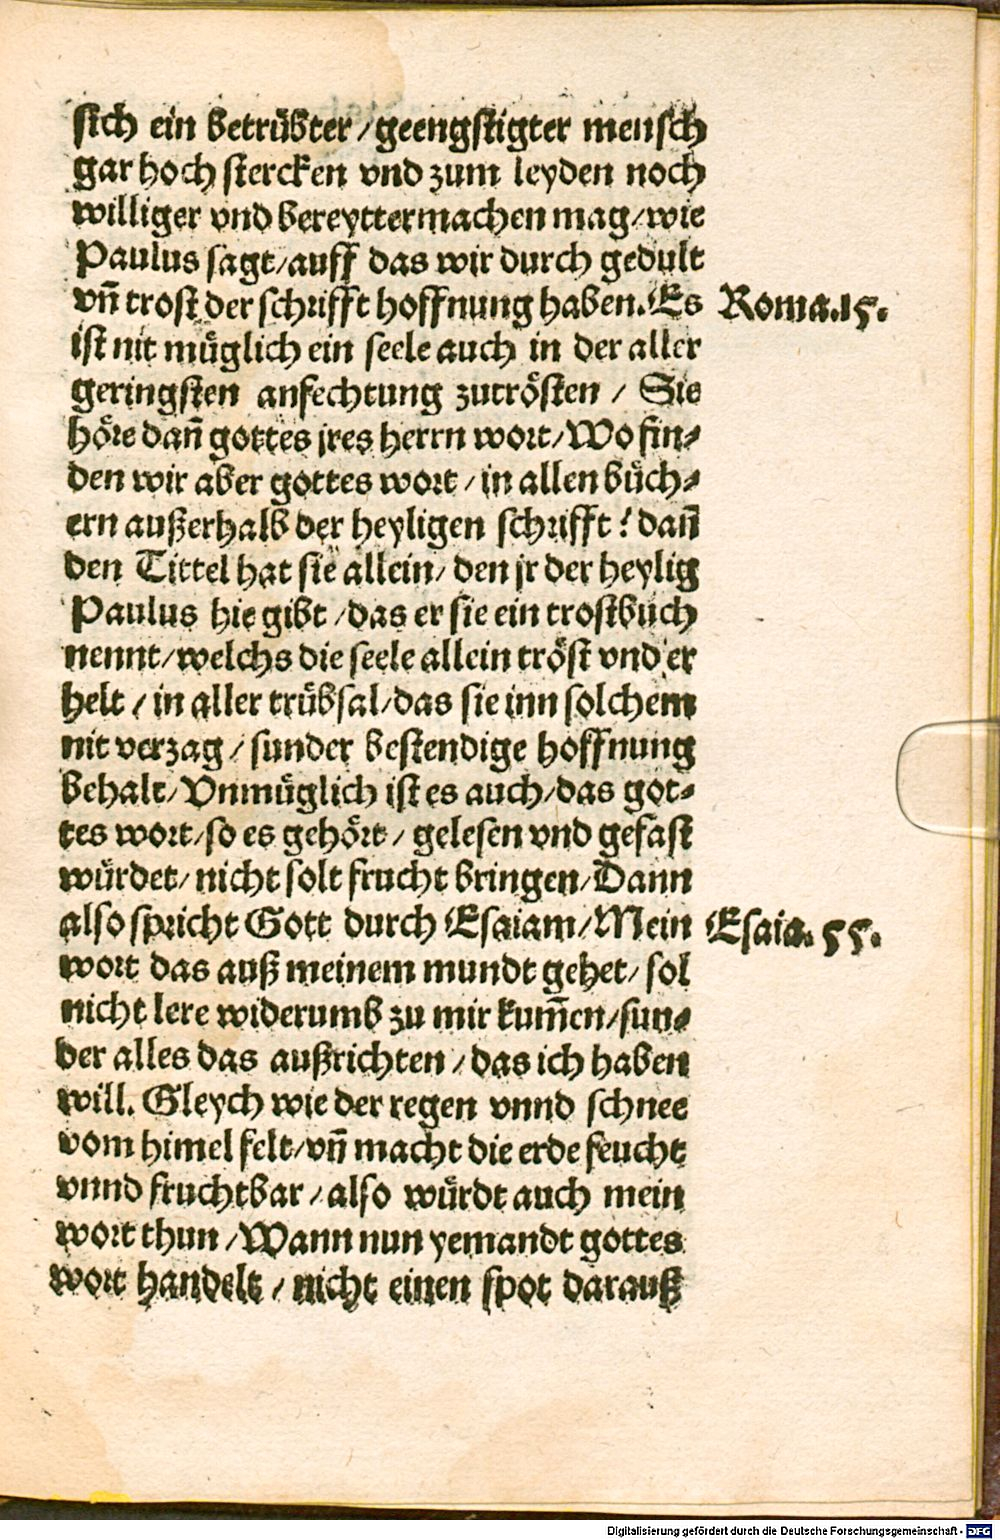 sich ein betrübter / geengstigter mensch
gar hoch stercken vnd zum leyden noch
williger vnd bereytter machen mag / wie
Paulus sagt / auff das wir durch gedult
vñ trost der schrifft hoffnung haben. Es
Roma. 15.
ist nit müglich ein seele auch in der aller
geringsten anfechtung zutrösten / Sie
höre dañ gottes jres herrn wort / Wo fin-
den wir aber gottes wort / in allen büch-
ern außerhalb der heyligen schrifft? dañ
den Tittel hat sie allein / den jr der heylig
Paulus hie gibt / das er sie ein trostbuch
nennt / welchs die seele allein tröst vnd er
helt / in aller trübsal / das sie inn solchem
nit verzag / sunder bestendige hoffnung
behalt / Vnmüglich ist es auch / das got-
tes wort / so es gehört / gelesen vnd gefast
würdet / nicht solt frucht bringen / Dann
also spricht Gott durch Esaiam / Mein
Esaia. 55.
wort das auß meinem mundt gehet / sol
nicht lere widerumb zu mir kum̃en / sun-
der alles das außrichten / das ich haben
will. Gleych wie der regen vnnd schnee
vom himel felt / vñ macht die erde feucht
vnnd fruchtbar / also würdt auch mein
wort thun / Wann nun yemandt gottes
wort handelt / nicht einen spot darauß
Digitalisierung gefördert durch die Deutsche Forschungsgemeinschaft - DFG